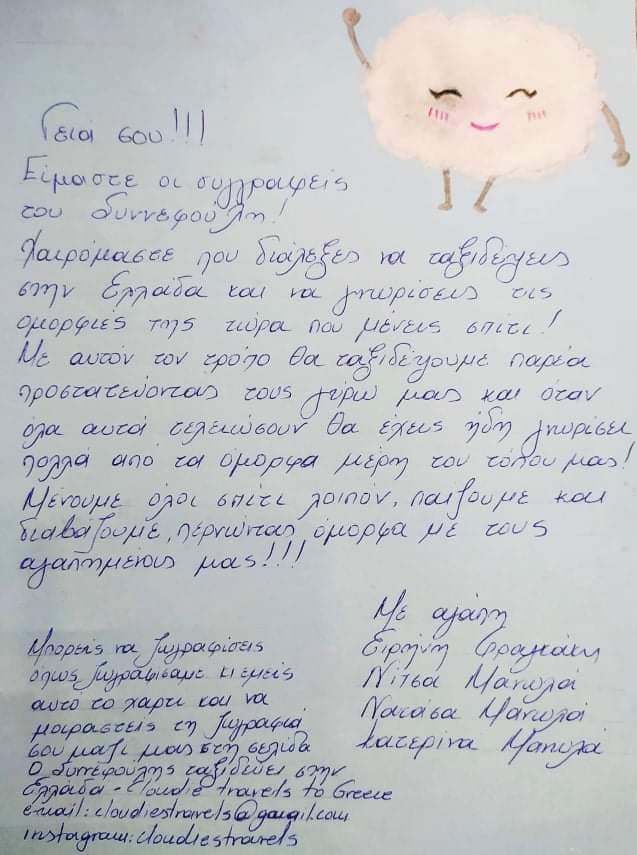 Γειά σου!!!
Είμαστε οι συγγραφείς
του Συννεφούλη!
Χαιρόμαστε που διάλεξες να ταξιδέψεις
στην Ελλάδα και να γνωρίσεις τις
ομορφιές της τώρα που μένεις σπίτι!
Με αυτόν τον τρόπο θα ταξιδέψουμε παρέα
προστατεύοντας τους γύρω μας και όταν
όλα αυτά τελειώσουν θα έχεις ήδη γνωρίσει
πολλά από τα όμορφα μέρη του τόπου μας!
Μένουμε όλοι σπίτι λοιπόν, παίζουμε και
διαβάζουμε, περνώντας όμορφα με τους
αγαπημένους μας!!!
Με αγάπη
Ειρήνη Φραγκάκη
Νίτσα Μανωλά
Νατάσα Μανωλά
Κατερίνα Μανωλά
Μπορείς να ζωγραφίσεις
όπως ζωγραφίσαμε κι εμείς
αυτό το χαρτί και να
μοιραστείς τη ζωγραφιά
σου μαζί μας στη σελίδα
Ο Συννεφούλης ταξιδεύει στην
Ελλάδα - Cloudie travels to Greece
e-mail: cloudiestravels@gmail.com
instagram: cloudiestravels